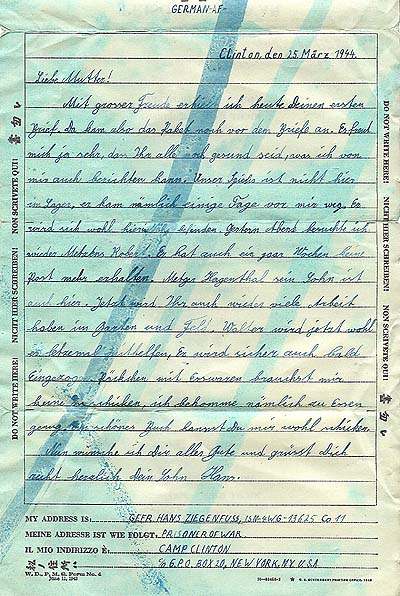 GERMAN-AF-
Clinton, den 25. März 1944.
Liebe Mutter!
Mit grosser Freude erhielt ich heute deinen ersten
Brief. Da kam also das Paket noch vor den Briefe an. Es freut
mich ja sehr, das Ihr alle noch gesund seid, was ich von
mir auch berichten kann. Unser Spiess ist nicht hier
im Lager, er kam nämlich einige Tage vor mir weg. Er
wird sich wohl befinden. Gestern Abend besuchte ich
wieder Metzlers Robert. Er hat auch ein paar Wochen keine
Post mehr erhalten. Metzger Hagenthal sein Sohn ist
auch hier. Jetzt wird Ihr auch wieder viele Arbeit
haben im Garten und Feld. Walter wird jetzt wohl
mithelfen. Er wird sicher auch bald
Eingezogen. Päckchen mit Esswaren brauchst mir
keine zu schicken, ich bekomme nämlich zu Essen
genug. schönes Buch kannst Du mir wohl schicken.
Nun wünsche ich Dir alles Gute und grüsst Dich
recht herzlich Dein Sohn Hans.
DO NOT WRITE HERE! NICHT HIER SCHREIBEN! NON SCRIVETE QUI!
DO NOT WRITE HERE! NICHT HIER SCHREIBEN! NON SCRIVETE QUI!
MY ADDRESS IS: GEFR. HANS ZIEGENFUSS, ISN-4WG-13625 Co 11
MEINE ADRESSE IST WIE FOLGT: PRISONER OF WAR
IL MIO INDIRIZZO È: CAMP CLINTON
% G.P.O. BOX 20, NEW YORK, N.Y. U.S.A.
W. D., P. M. G. Form No. 4
June 11, 1943
U. S. GOVERNMENT PRINTING OFFICE